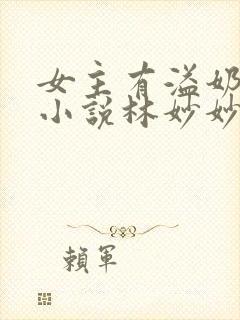 女主有溢奶
小說林妙妙
賴軍